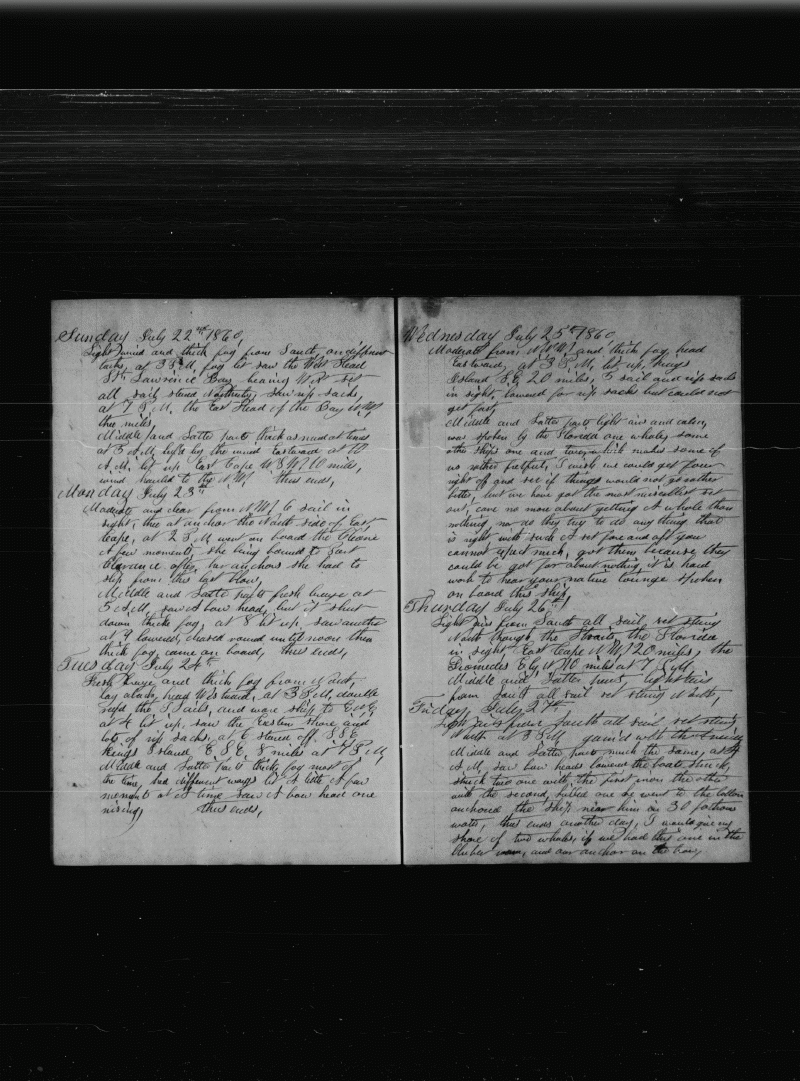 Sunday July 22nd 1860,
Light winds and thick fog from South, on different
tacks, at 3 P.M, fog lit saw the West Head
Sth Lawrence Bay bearing
all sail steered Northerly, saw rip sacks,
at 7 P.M, the East Head of the Bay
three miles,
Middle and Latter parts thick as mud at times
at 5 A.M, by the wind Eastward at 10
A.M, lit up East Cape 10 miles,
wind hauled to the thus ends,
Monday July 23rd
Moderate and clear from 6 sail in
sight, three at anchor the North side of East
Cape, at 2 P.M went on board the
A few moments, she being bound to East
after her anchors she had to
slip from this last blow,
Middle and Latter parts fresh breeze at
5 A.M, saw A bow head, but it shut
down thick fog, at 8 lit up, saw another
at 9 lowered, chased round until noon then
thick fog came on board, thus ends,
Tuesday July 24th
Fresh breeze and thick fog from
lay aback head at 3 P.M, double
the T Sails, and wore ship to
at 4 lit up, saw the Eastern shore and
lots of rip sacks, at 6 steered off S.S.E
Kings Island E S E 8 miles at P.M,
Middle and Latter parts thick fog most of
the time, had different ways lit A little A few
moments at A time saw A bow head one
rising, thus ends,
Wednesday July 25th 1860,
Moderate from and thick fog, head
Eastward, at 3 P.M, lit up, Kings
Island S.E, 20 miles, 5 sail and rip sacks
in sight, lowered for rip sacks but could not
get fast,
Middle and Latter parts light air and calm,
was spoken by the Florida one whale, some
other ships one and two, which makes some of
us rather fretful, I wish we could get four
right off and see if things would not go rather
better, but we have got the most miscellist set
out, care no more about getting A whale than
nothing nor do they try to do any thing that
is right with such A set fore and aft you
cannot expect much, got them because they
could be got for about nothing, it is hard
work to hear your native tounge spoken
on board this ship,
Thursday July 26th,
Light airs from South all sail set string
North through the Straits, the Florida
in sight East Cape 20 miles, the
Diomedes 10 miles at 7 P.M,
Middle and Latter parts, light airs
from South all sail set string North,
Friday, July 27th,
Light airs from South all sail set string
North at 3 P.M gam'd with the
Middle and Latter parts much the same, at 4
A.M, saw bow heads lowered the boats struck,
struck two one with the first iron the other
with the second, killed one he went to the bottom
anchored the ship near him in 30 fathoms
water, thus ends another day, I would give my
share of two whales, if we had this one in the
blubber room, and our anchor on the bow,